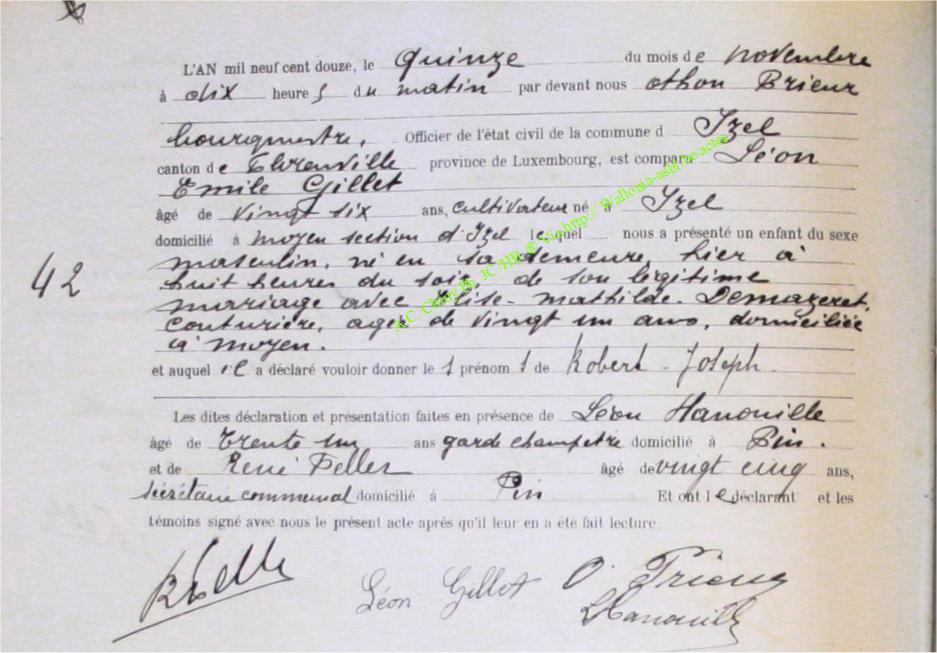 L'AN mil neuf cent douze, le Quinze du mois de novembre
à dix heures du matin par devant nous Othon Prieur
bourgmestre, Officier de l'état civil de la commune d Izel
canton de Florenville province de Luxembourg, est comparu Léon
Emile Gillet
âgé de vingt six ans, cultivateur né à Izel
domicilié à moyen section d'Izel lequel nous a présenté un enfant du sexe
masculin, né en sa demeure, hier à
huit heures du soir de son légitime
42
mariage avec Elise-Mathilde Demazeret,
couturière, agée de vingt un ans, domiciliée
à moyen.
et auquel il a déclaré vouloir donner le 1 prénom 1 de Robert-Joseph.
Les dites déclaration et présentation faites en présence de Léon Hanouille
âgé de Trente un ans garde champetre domicilié à Pin.
et de René Feller âgé de vingt cinq ans,
secrétaire communal domicilié à Pin Et ont le déclarant et les
témoins signé avec nous le présent acte après qu'il leur en a été fait lecture.
Léon Gillet O. Prieur
LHanouille